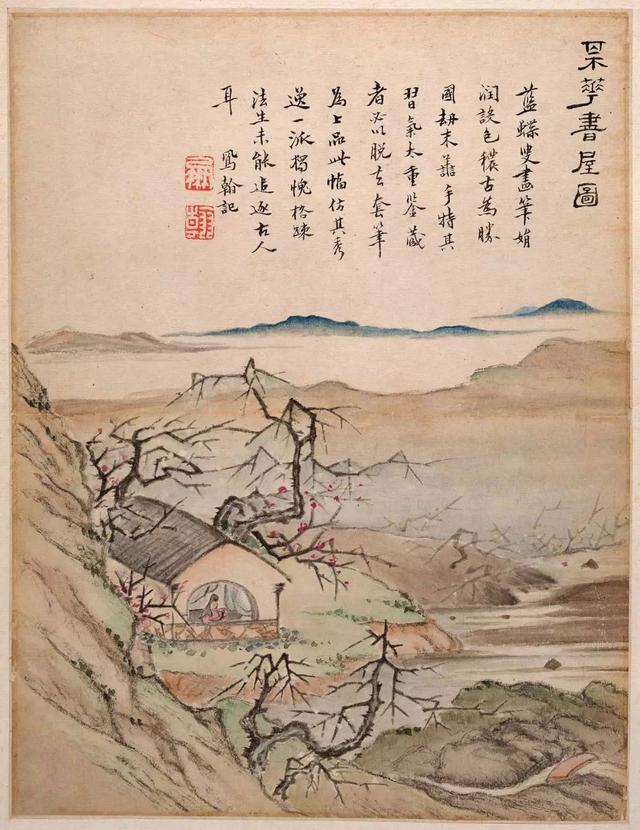 華書屋圖
藍蝶叟畫筆娟
潤設色穠古為勝
國刼末善手特其
習氣太重鑒藏
者必以脫去套筆
為上品此幅仿其秀
逸一派獨愧格疎
法生未能追逐古人
耳 鳳翰記